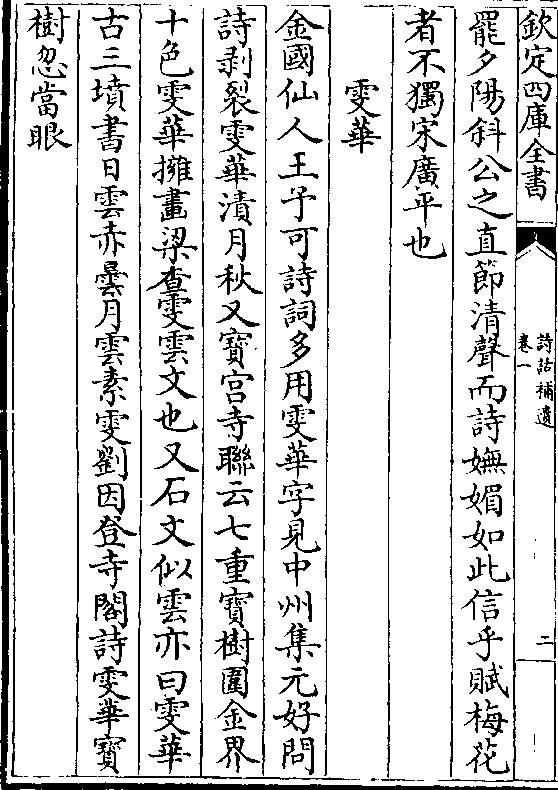 欽定四庫全書
詩話補遺
卷一
二
罷夕陽斜公之直節清聲而詩嫵媚如此信乎賦梅花
者不獨宋廣平也
雯華
金國仙人王予可詩詞多用雯華字見中州集元好問
詩剥裂雯華漬月秋又寶宫寺聯云七重寶樹圍金界
十色雯華擁畫梁查雯雲文也又石文似雲亦曰雯華
古三墳書日雲赤曇月雲素雯劉因登寺閣詩雯華寶
樹忽當眼